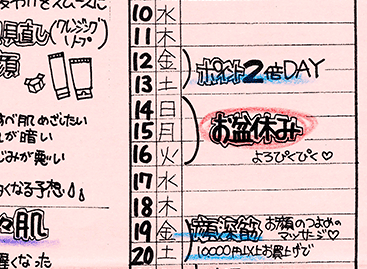 見直し(クレンジング
ソープ)
べ肌めざしたい
が暗い
じみが悪い
くなる予想
々肌
遅くなった
10 水
11 木
12 金
13 土
ポイント2倍DAY
14 日
15 月
16 火
お盆休み
よろぴくぴく♡
17 水
18 木
19 金
20 土
顔深筋 お顔のつよめの
マッサージ♡
10000円以上お買上げで